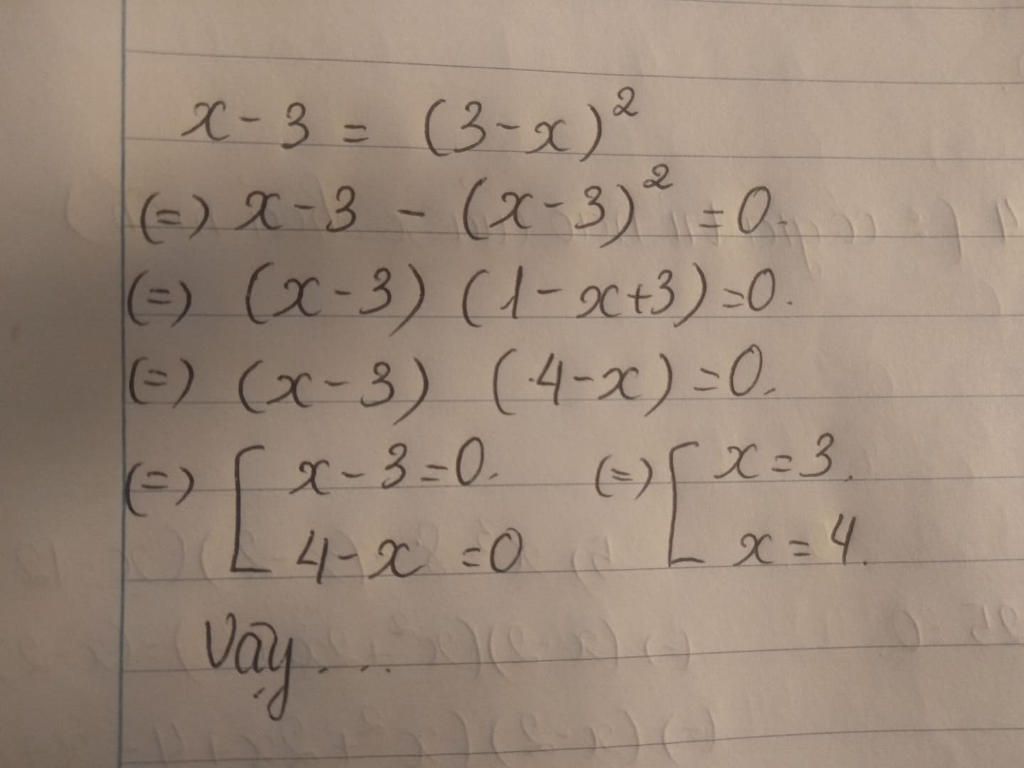 x - 3 = (3 - x)²
(=) x - 3 - (x - 3)² = 0.
(=) (x - 3) (1 - x + 3) = 0.
(=) (x - 3) (4 - x) = 0.
(=) [ x - 3 = 0. (=) [ x = 3.
4 - x = 0 x = 4.
Vậy ....